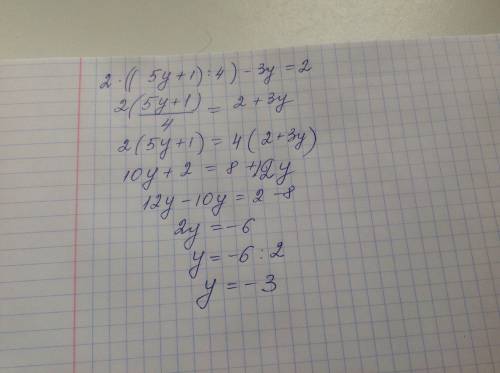 2·((5y+1):4)-3y=2
2(5y+1)/4 = 2+3y
2(5y+1)=4(2+3y)
10y+2=8+12y
12y-10y=2-8
2y=-6
y=-6:2
y=-3